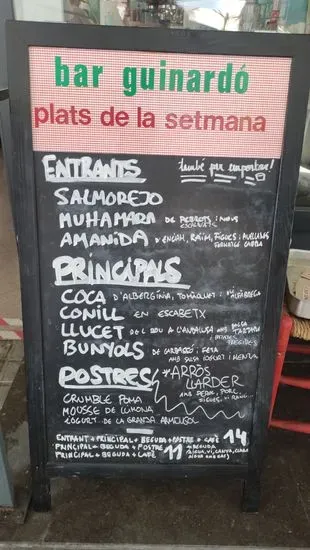 bar guinardó
plats de la setmana
ENTRANTS
també per emportar!
SALMOREJO
MUHAMARA DE PEBROTS I NOUS
AMANIDA D'ENCIAM, RAÏM, FIGUES I AVELLANES
FORMATGE CABRA
PRINCIPALS
COCA D'ALBERGÍNIA, TOMÀQUET I ALFÀBREGA
CONILL EN ESCABETX
LLUÇET DE L BOU A L'ANDALUSA AMB SALSA TARTARA
BUNYOLS DE CARBASSÓ I FETA
AMB SALSA IOGURT I MENTA
POSTRES
*ARRÒS
LLARDER
CRUMBLE POMA
MOUSSE DE LLIMONA
IOGURT DE LA GRANJA ARMENGOL
AMB PEBRE, PORC,
ENTRANT + PRINCIPAL + BEGUDA + POSTRE + CAFÈ 14
PRINCIPAL + BEGUDA + POSTRE
PRINCIPAL + BEGUDA + CAFÈ 11
*BEGUDA
(AIGUA, VI, CANYA, CLARA
AIGUA AMB GAS)